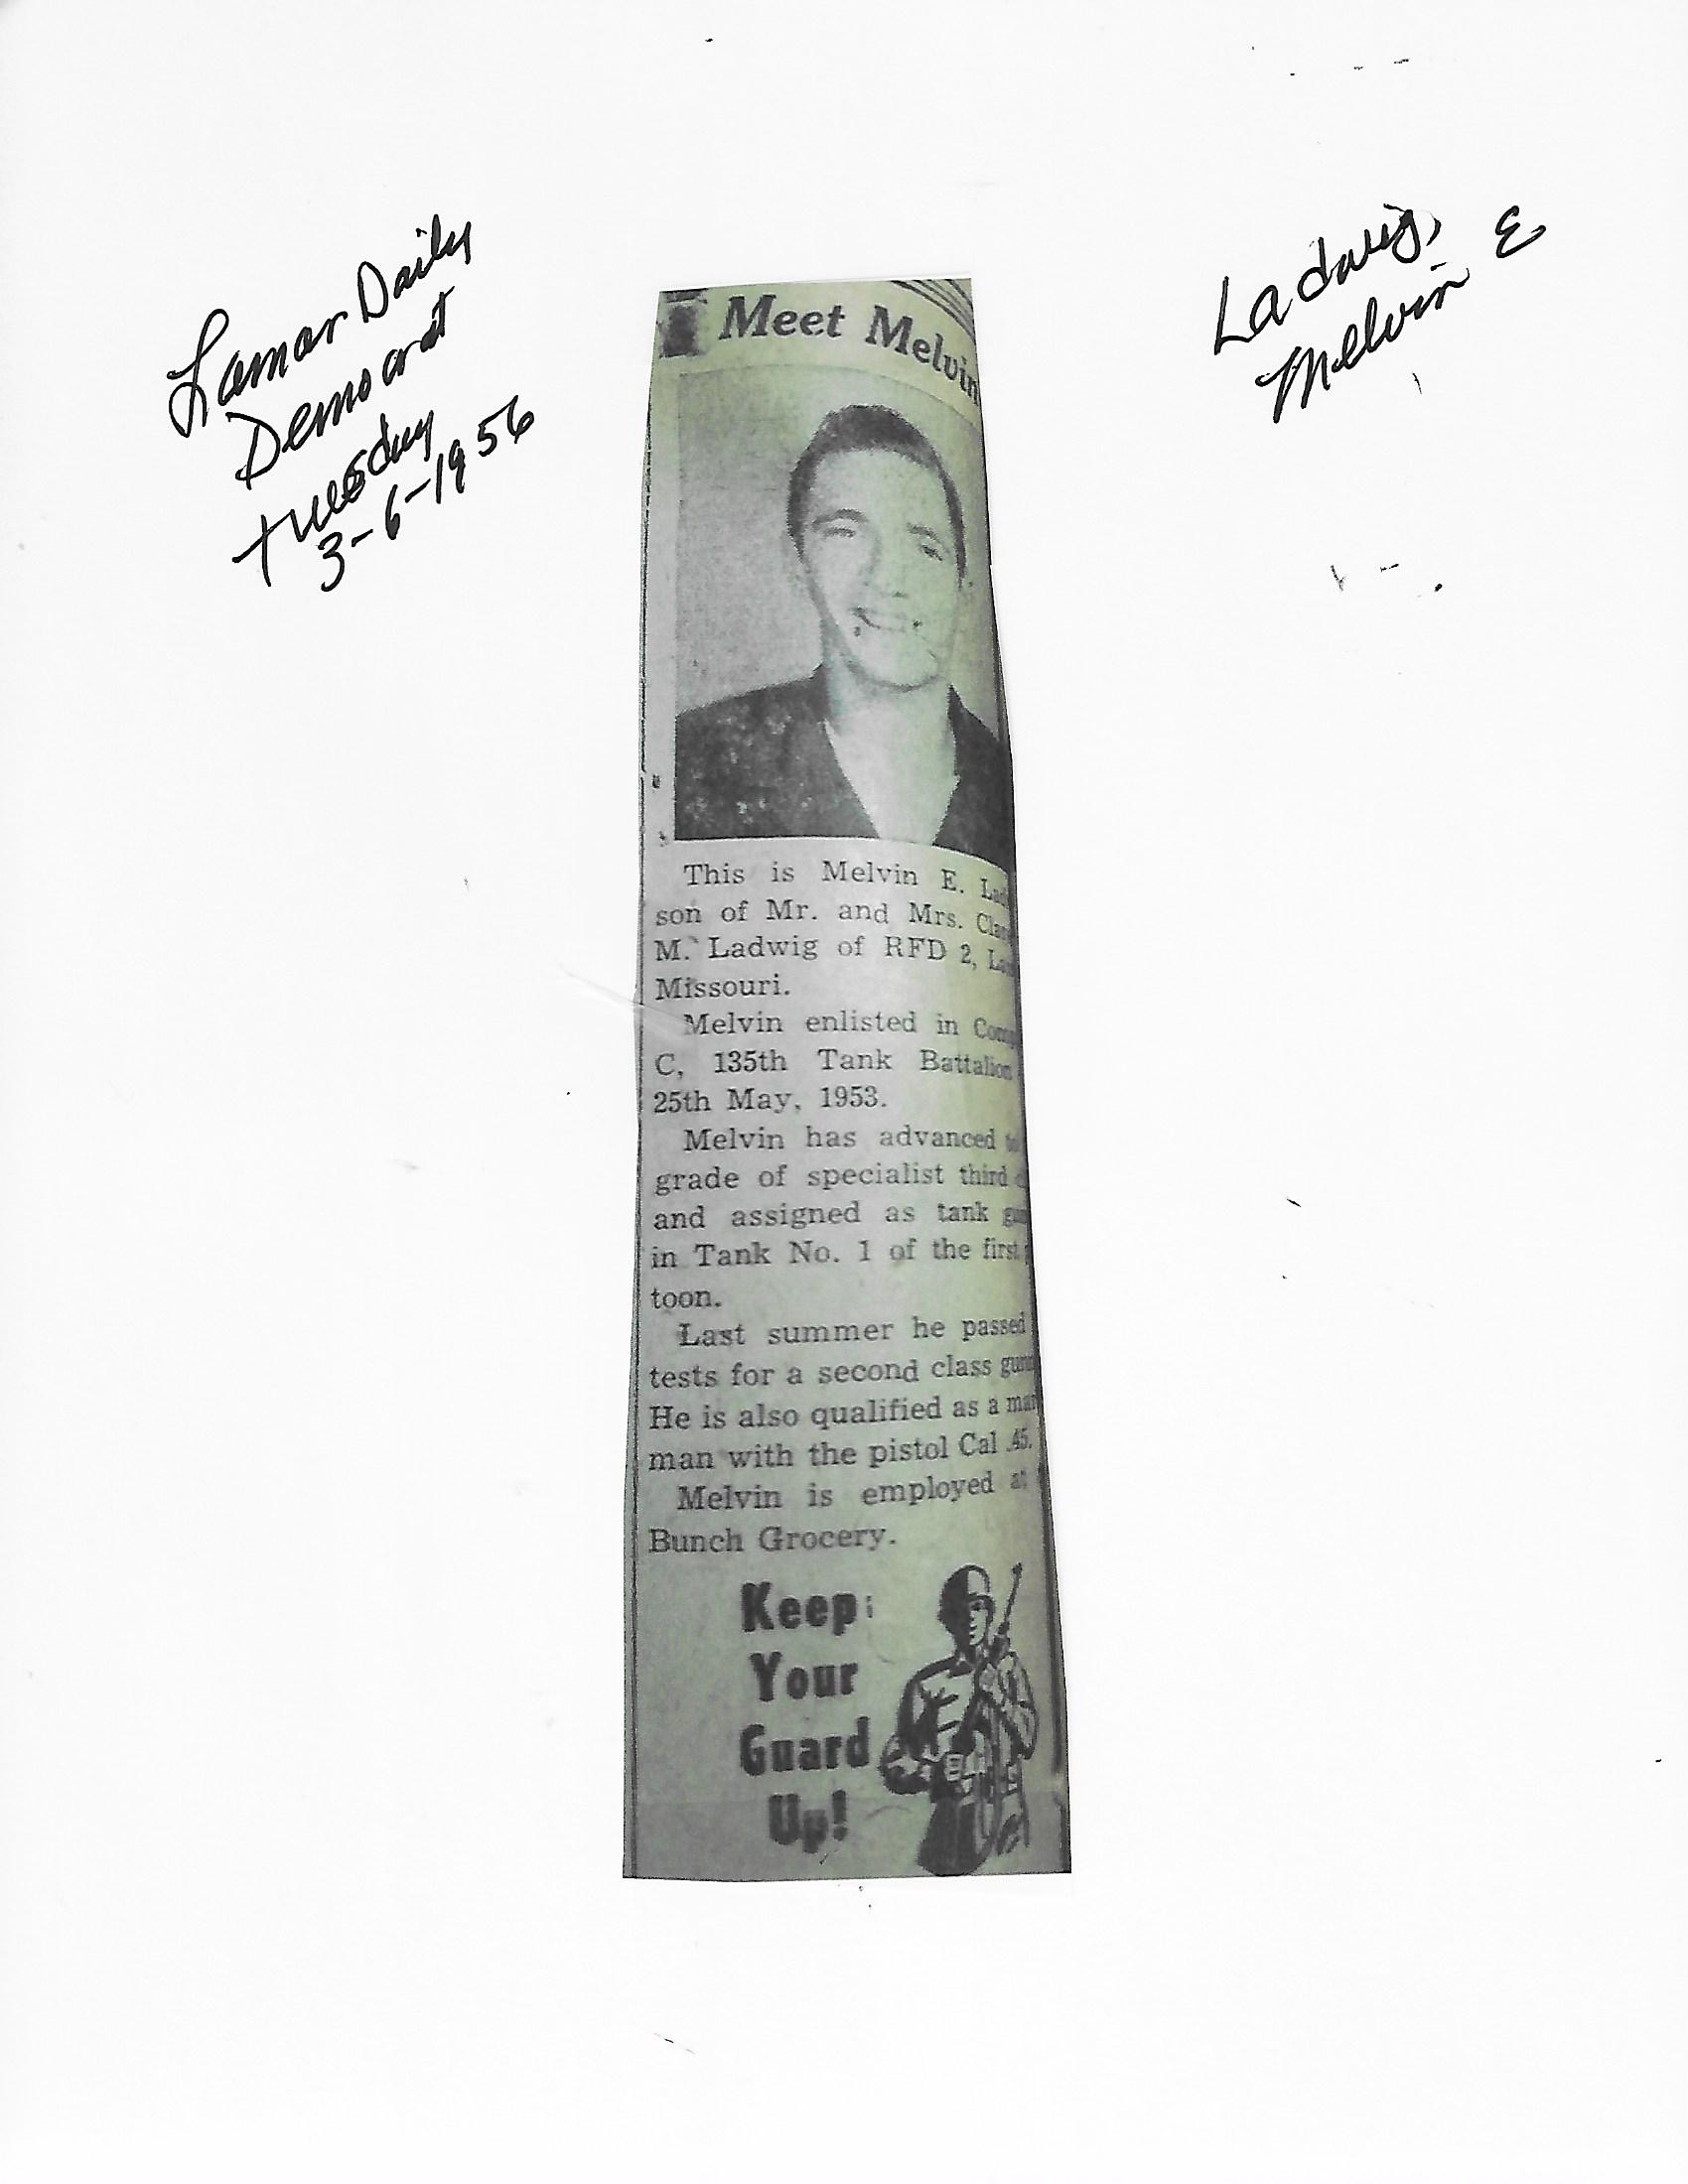 Lamar Daily
Democrat
Tuesday
3-6-1956
Ladwig,
Melvin E
Meet Melvin
This is Melvin E. Lad
son of Mr. and Mrs. Clar
M. Ladwig of RFD 2, La
Missouri.
Melvin enlisted in Com
C, 135th Tank Battalion
25th May, 1953.
Melvin has advanced to
grade of specialist third c
and assigned as tank gu
in Tank No. 1 of the first
toon.
Last summer he passed
tests for a second class gun
He is also qualified as a mar
man with the pistol Cal .45.
Melvin is employed at
Bunch Grocery.
Keep
Your
Guard
Up!